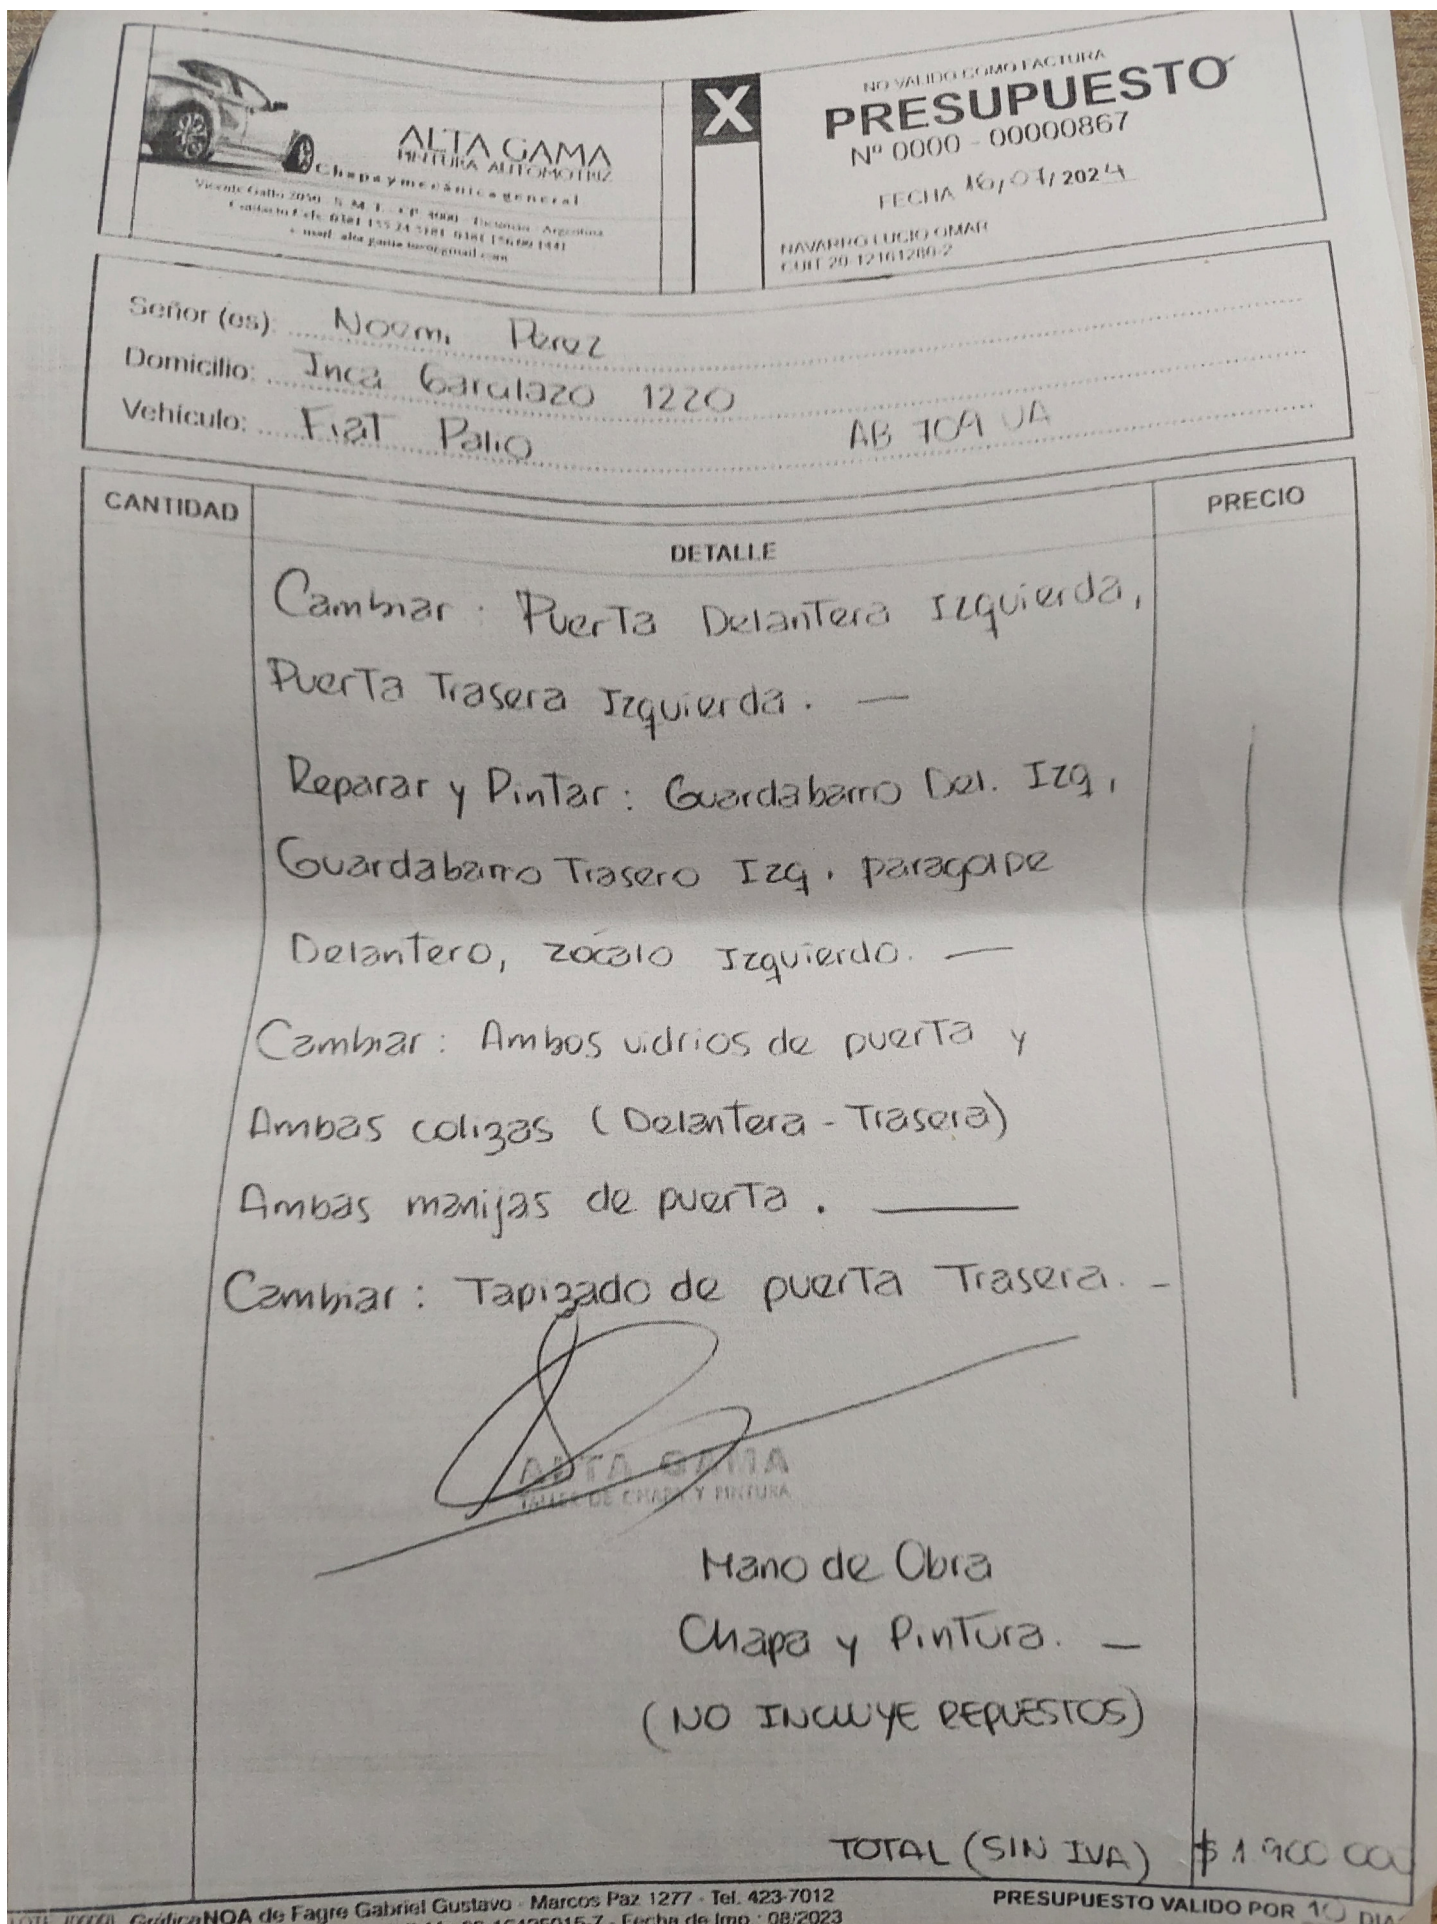 ALTA GAMA
PINTURA AUTOMOTRIZ
Chapa y mecánica general
Vicente Gallo 2050 - S. M. T. - CP 4000 - Tucumán - Argentina
X
NO VALIDO COMO FACTURA
PRESUPUESTO
Nº 0000 - 00000867
FECHA 16/07/2024
NAVARRO LUCIO OMAR
CUIT 20-12161280-2
Señor (es): Noemi Perez
Domicilio: Inca Garcilazo 1220
Vehículo: Fiat Palio AB 709 UA
CANTIDAD DETALLE PRECIO
Cambiar : Puerta Delantera Izquierda,
Puerta Trasera Izquierda. —
Reparar y Pintar : Guardabarro Del. Izq,
Guardabarro Trasero Izq, paragolpe
Delantero, zócalo Izquierdo. —
Cambiar : Ambos vidrios de puerta y
Ambas colizas (Delantera - Trasera)
Ambas manijas de puerta. —
Cambiar : Tapizado de puerta Trasera. -
ALTA GAMA
TALLER DE CHAPA Y PINTURA
Mano de Obra
Chapa y Pintura. —
(NO INCLUYE REPUESTOS)
TOTAL (SIN IVA) $ 1 900 000
GráficaNOA de Fagre Gabriel Gustavo - Marcos Paz 1277 - Tel. 423-7012
Fecha de Imp.: 08/2023
PRESUPUESTO VALIDO POR 10 DIAS